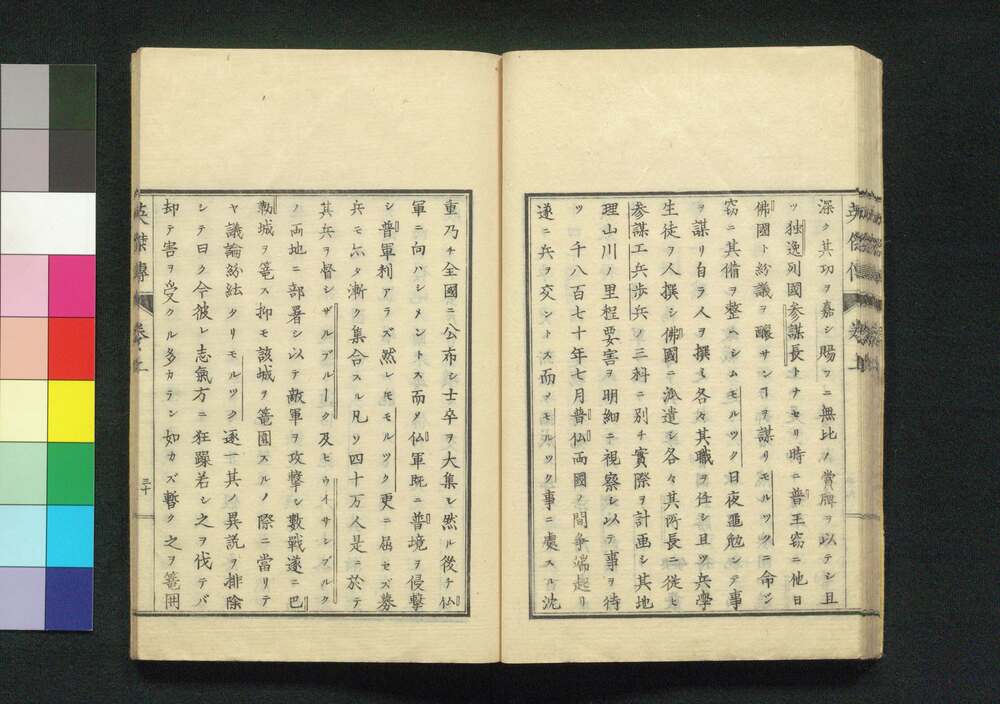 深ク其功ヲ嘉シ賜フニ無比ノ賞牌ヲ以テシ且
ツ独逸列國参謀長トナセリ時ニ普王窃ニ他日
佛國ト紛議ヲ醸サンヿヲ謀リモルツクニ命シ
窃ニ其備ヲ整ヘシムモルツク日夜黽勉シテ事
ヲ謀リ自ラ人ヲ撰ミ各々其職ヲ任シ且ツ兵學
生徒ヲ人撰シ佛國ニ派遣シ各々其所長ニ従ヒ
参謀工兵歩兵ノ三科ニ別チ實際ヲ計画シ其地
理山川ノ里程要害ヲ明細ニ視察シ以テ事ヲ待
ツ 千八百七十年七月普仏両國ノ間争端起リ
遂ニ兵ヲ交ントス而ノモルツク事ニ處スル沈
英傑傳 巻上
重乃チ全國ニ公布シ士卒ヲ大集シ然ル後チ仏
軍ニ向ハシメントス而タ仏軍既ニ普境ヲ侵撃
シ普軍利アラズ然レモモルツク更ニ屈セズ募
兵モ亦タ漸ク集合スル凡ソ四十万人是ニ於テ
其兵ヲ督シザルアルーク及ヒウイサンブルク
ノ両地ニ部署シ以テ敵軍ヲ攻撃シ數戰遂ニ巴
勒城ヲ篭ス抑モ該城ヲ篭圍スルノ際ニ當リテ
ヤ議論紛紜タリモルツク逐一其ノ異説ヲ排除
シテ曰ク今彼レ志氣方ニ狂躁若シ之ヲ伐テバ
却テ害ヲ受クル多カラン如カズ暫ク之ヲ篭
英傑傳 巻上 三十